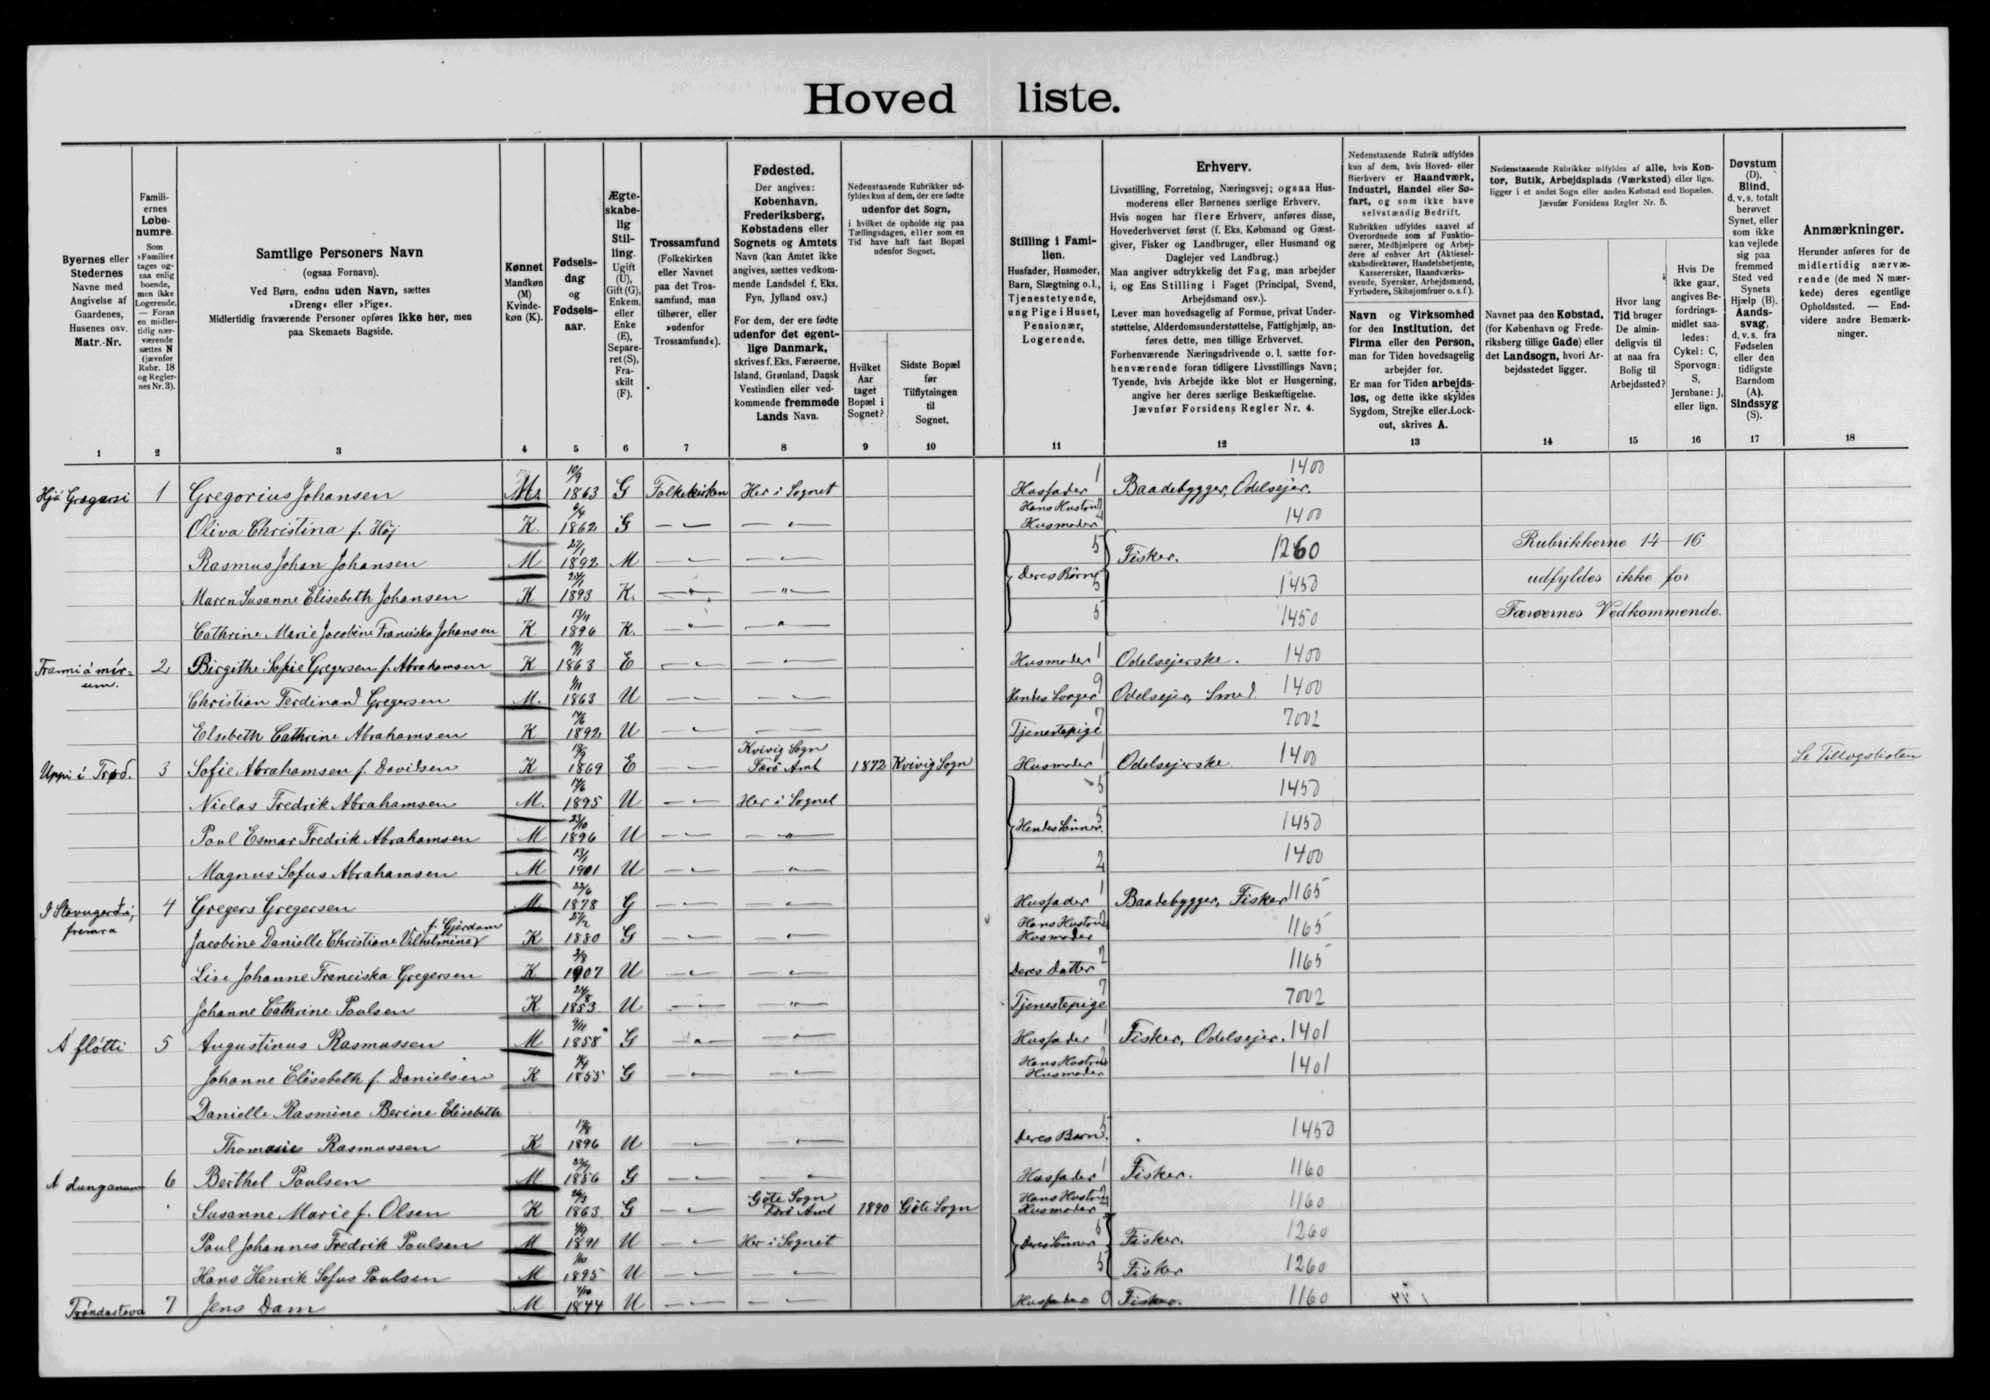 Hoved liste.
Byernes eller Stedernes Navne med Angivelse af Gaardenes, Husenes osv. Matr.-Nr.
Familiernes Løbenumre. Som »Familie« tages ogsaa enlig boende, men ikke Logerende. — Foran en midlertidig nærværende sættes N (jævnfør Rubr. 18 og Reglernes Nr. 3).
Samtlige Personers Navn
(ogsaa Fornavn).
Ved Børn, endnu uden Navn, sættes
»Dreng« eller »Pige«.
Midlertidig fraværende Personer opføres ikke her, men
paa Skemaets Bagside.
Kønnet Mandkøn (M) Kvindekøn (K).
Fødselsdag og Fødselsaar.
Ægteskabelig Stilling. Ugift (U), Gift (G), Enkem. eller Enke (E), Separeret (S), Fraskilt (F).
Trossamfund (Folkekirken eller Navnet paa det Trossamfund, man tilhører, eller »udenfor Trossamfund«).
Fødested. Der angives: København, Frederiksberg, Købstadens eller Sognets og Amtets Navn (kan Amtet ikke angives, sættes vedkommende Landsdel f. Eks. Fyn, Jylland osv.)
For dem, der ere fødte udenfor det egentlige Danmark, skrives f. Eks. Færøerne, Island, Grønland, Dansk Vestindien eller vedkommende fremmede Lands Navn.
Nedenstaaende Rubrikker udfyldes kun af dem, der ere fødte udenfor det Sogn, i hvilket de opholde sig paa Tællingsdagen, eller som en Tid have haft fast Bopæl udenfor Sognet.
Hvilket Aar taget Bopæl i Sognet?
Sidste Bopæl før Tilflytningen til Sognet.
Stilling i Familien. Husfader, Husmoder, Barn, Slægtning o.l., Tjenestetyende, ung Pige i Huset, Pensionær, Logerende.
Erhverv.
Livsstilling, Forretning, Næringsvej; ogsaa Husmoderens eller Børnenes særlige Erhverv.
Hvis nogen har flere Erhverv, anføres disse, Hovederhvervet først (f. Eks. Købmand og Gæstgiver, Fisker og Landbruger, eller Husmand og Daglejer ved Landbrug.)
Man angiver udtrykkelig det Fag, man arbejder i, og Ens Stilling i Faget (Principal, Svend, Arbejdsmand osv.).
Lever man hovedsagelig af Formue, privat Understøttelse, Alderdomsunderstøttelse, Fattighjælp, anføres dette, men tillige Erhvervet.
Forhenværende Næringsdrivende o. l. sætte forhenværende foran tidligere Livsstillings Navn; Tyende, hvis Arbejde ikke blot er Husgerning, angive her deres særlige Beskæftigelse.
Jævnfør Forsidens Regler Nr. 4.
Nedenstaaende Rubrik udfyldes kun af dem, hvis Hoved- eller Bierhverv er Haandværk, Industri, Handel eller Søfart, og som ikke have selvstændig Bedrift.
Rubrikken udfyldes saavel af Overordnede som af Funktionærer, Medhjælpere og Arbejdere af enhver Art (Aktieselskabsdirektører, Handelsbetjente, Kassererskeer, Haandværkssvende, Syersker, Arbejdsmænd, Fyrbødere, Skibsjomfruer o. s. f.).
Navn og Virksomhed for den Institution, det Firma eller den Person, man for Tiden hovedsagelig arbejder for.
Er man for Tiden arbejdsløs, og dette ikke skyldes Sygdom, Strejke eller Lockout, skrives A.
Nedenstaaende Rubrikker udfyldes af alle, hvis Kontor, Butik, Arbejdsplads (Værksted) eller lign. ligger i et andet Sogn eller anden Købstad end Bopælen. Jævnfør Forsidens Regler Nr. 5.
Navnet paa den Købstad, (for København og Frederiksberg tillige Gade) eller det Landsogn, hvori Arbejdsstedet ligger.
Hvor lang Tid bruger De almindeligvis til at naa fra Bolig til Arbejdssted?
Hvis De ikke gaar, angives Befordringsmidlet saaledes: Cykel: C, Sporvogn: S, Jernbane: J, eller lign.
Døvstum (D). Blind, d. v. s. totalt berøvet Synet, eller som ikke kan vejlede sig paa fremmed Sted ved Synets Hjælp (B). Aandssvag, d. v. s. fra Fødselen eller den tidligste Barndom (A). Sindssyg (S).
Anmærkninger. Herunder anføres for de midlertidig nærværende (de med N mærkede) deres egentlige Opholdssted. — Endvidere andre Bemærkninger.
1 2 3 4 5 6 7 8 9 10 11 12 13 14 15 16 17 18
Hjá Gregersi 1 Gregorius Johansen M 10/9 1863 G Folkekirken Her i Sognet Husfader 1 Baadebygger, Odelsejer. 1400
Oliva Christina f. Høj K. 1862 G Hans Hustru Husmoder 2 1400
Rasmus Johan Johansen M 1892 M Deres Børn 5 Fisker. 1260 Rubrikkerne 14-16
Maren Susanne Elisebeth Johansen K 1893 K. 5 1450 udfyldes ikke for
Cathrine Marie Jacobine Franciska Johansen K 1896 K. 5 1450 Færøernes Vedkommende.
Frammi á mýrum. 2 Birgithe Sofie Gregersen f. Abrahamsen K 1863 E Husmoder 1 Odelsejerske. 1400
Christian Ferdinand Gregersen M. 1863 U Hendes Svoger 9 Odelsejer, Smed 1400
Elsebeth Cathrine Abrahamsen K 1892 U Tjenestepige 7 7002
Uppi í Trød. 3 Sofie Abrahamsen f. Davidsen K 1869 E Kvivig Sogn Færø Amt 1872 Kvivig Sogn Husmoder 1 Odelsejerske 1400 Se Tillægslisten
Niclas Fredrik Abrahamsen M. 1895 U Her i Sognet Hendes Sønner. 5 1450
Poul Esmar Fredrik Abrahamsen M 23/10 1896 U 5 1450
Magnus Sofus Abrahamsen M 1901 U 2 1400
4 Gregers Gregersen M 22/6 1878 G Husfader 1 Baadebygger, Fisker 1165
Jacobine Danielle Christiane Vilhelmine f. Gjerdam K 1880 G Hans Hustru Husmoder 2 1165
Lise Johanne Franciska Gregersen K 1907 U Deres Datter 2 1165
Johanne Cathrine Poulsen K 24/8 1853 U Tjenestepige 7 7002
Á fløtti 5 Augustinus Rasmussen M 9/11 1858 G Husfader 1 Fisker, Odelsejer. 1401
Johanne Elisebeth f. Danielsen K 1855 G Hans Hustru Husmoder 2 1401
Danielle Rasmine Berine Elisebeth
Thomasie Rasmussen K 1896 U Deres Barn. 5 1450
6 Berthel Poulsen M 1856 G Husfader 1 Fisker. 1160
Susanne Marie f. Olsen K 1863 G Gøte Sogn Færø Amt 1890 Gøte Sogn Hans Hustru Husmoder 2 1160
Poul Johannes Fredrik Poulsen M 1891 U Her i Sognet Deres Sønner 5 Fisker. 1260
Hans Henrik Sofus Poulsen M 1895 U 5 Fisker 1260
7 Jens Dam M 1844 U Husfader 0 Fisker. 1160